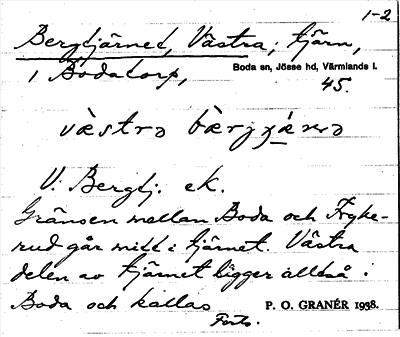 1-2
Bergtjärnet, Västra; tjärn,
i Bodatorp, Boda sn, Jösse hd, Värmlands l.
45.
västrə bärjɟǽṇə
V. Bergtj. ek.
Gränsen mellan Boda och Fryke-
rud går mitt i tjärnet. Västra
delen av tjärnet ligger alltså i
Boda och kallas P. O. GRANÉR 1938.
Forts.